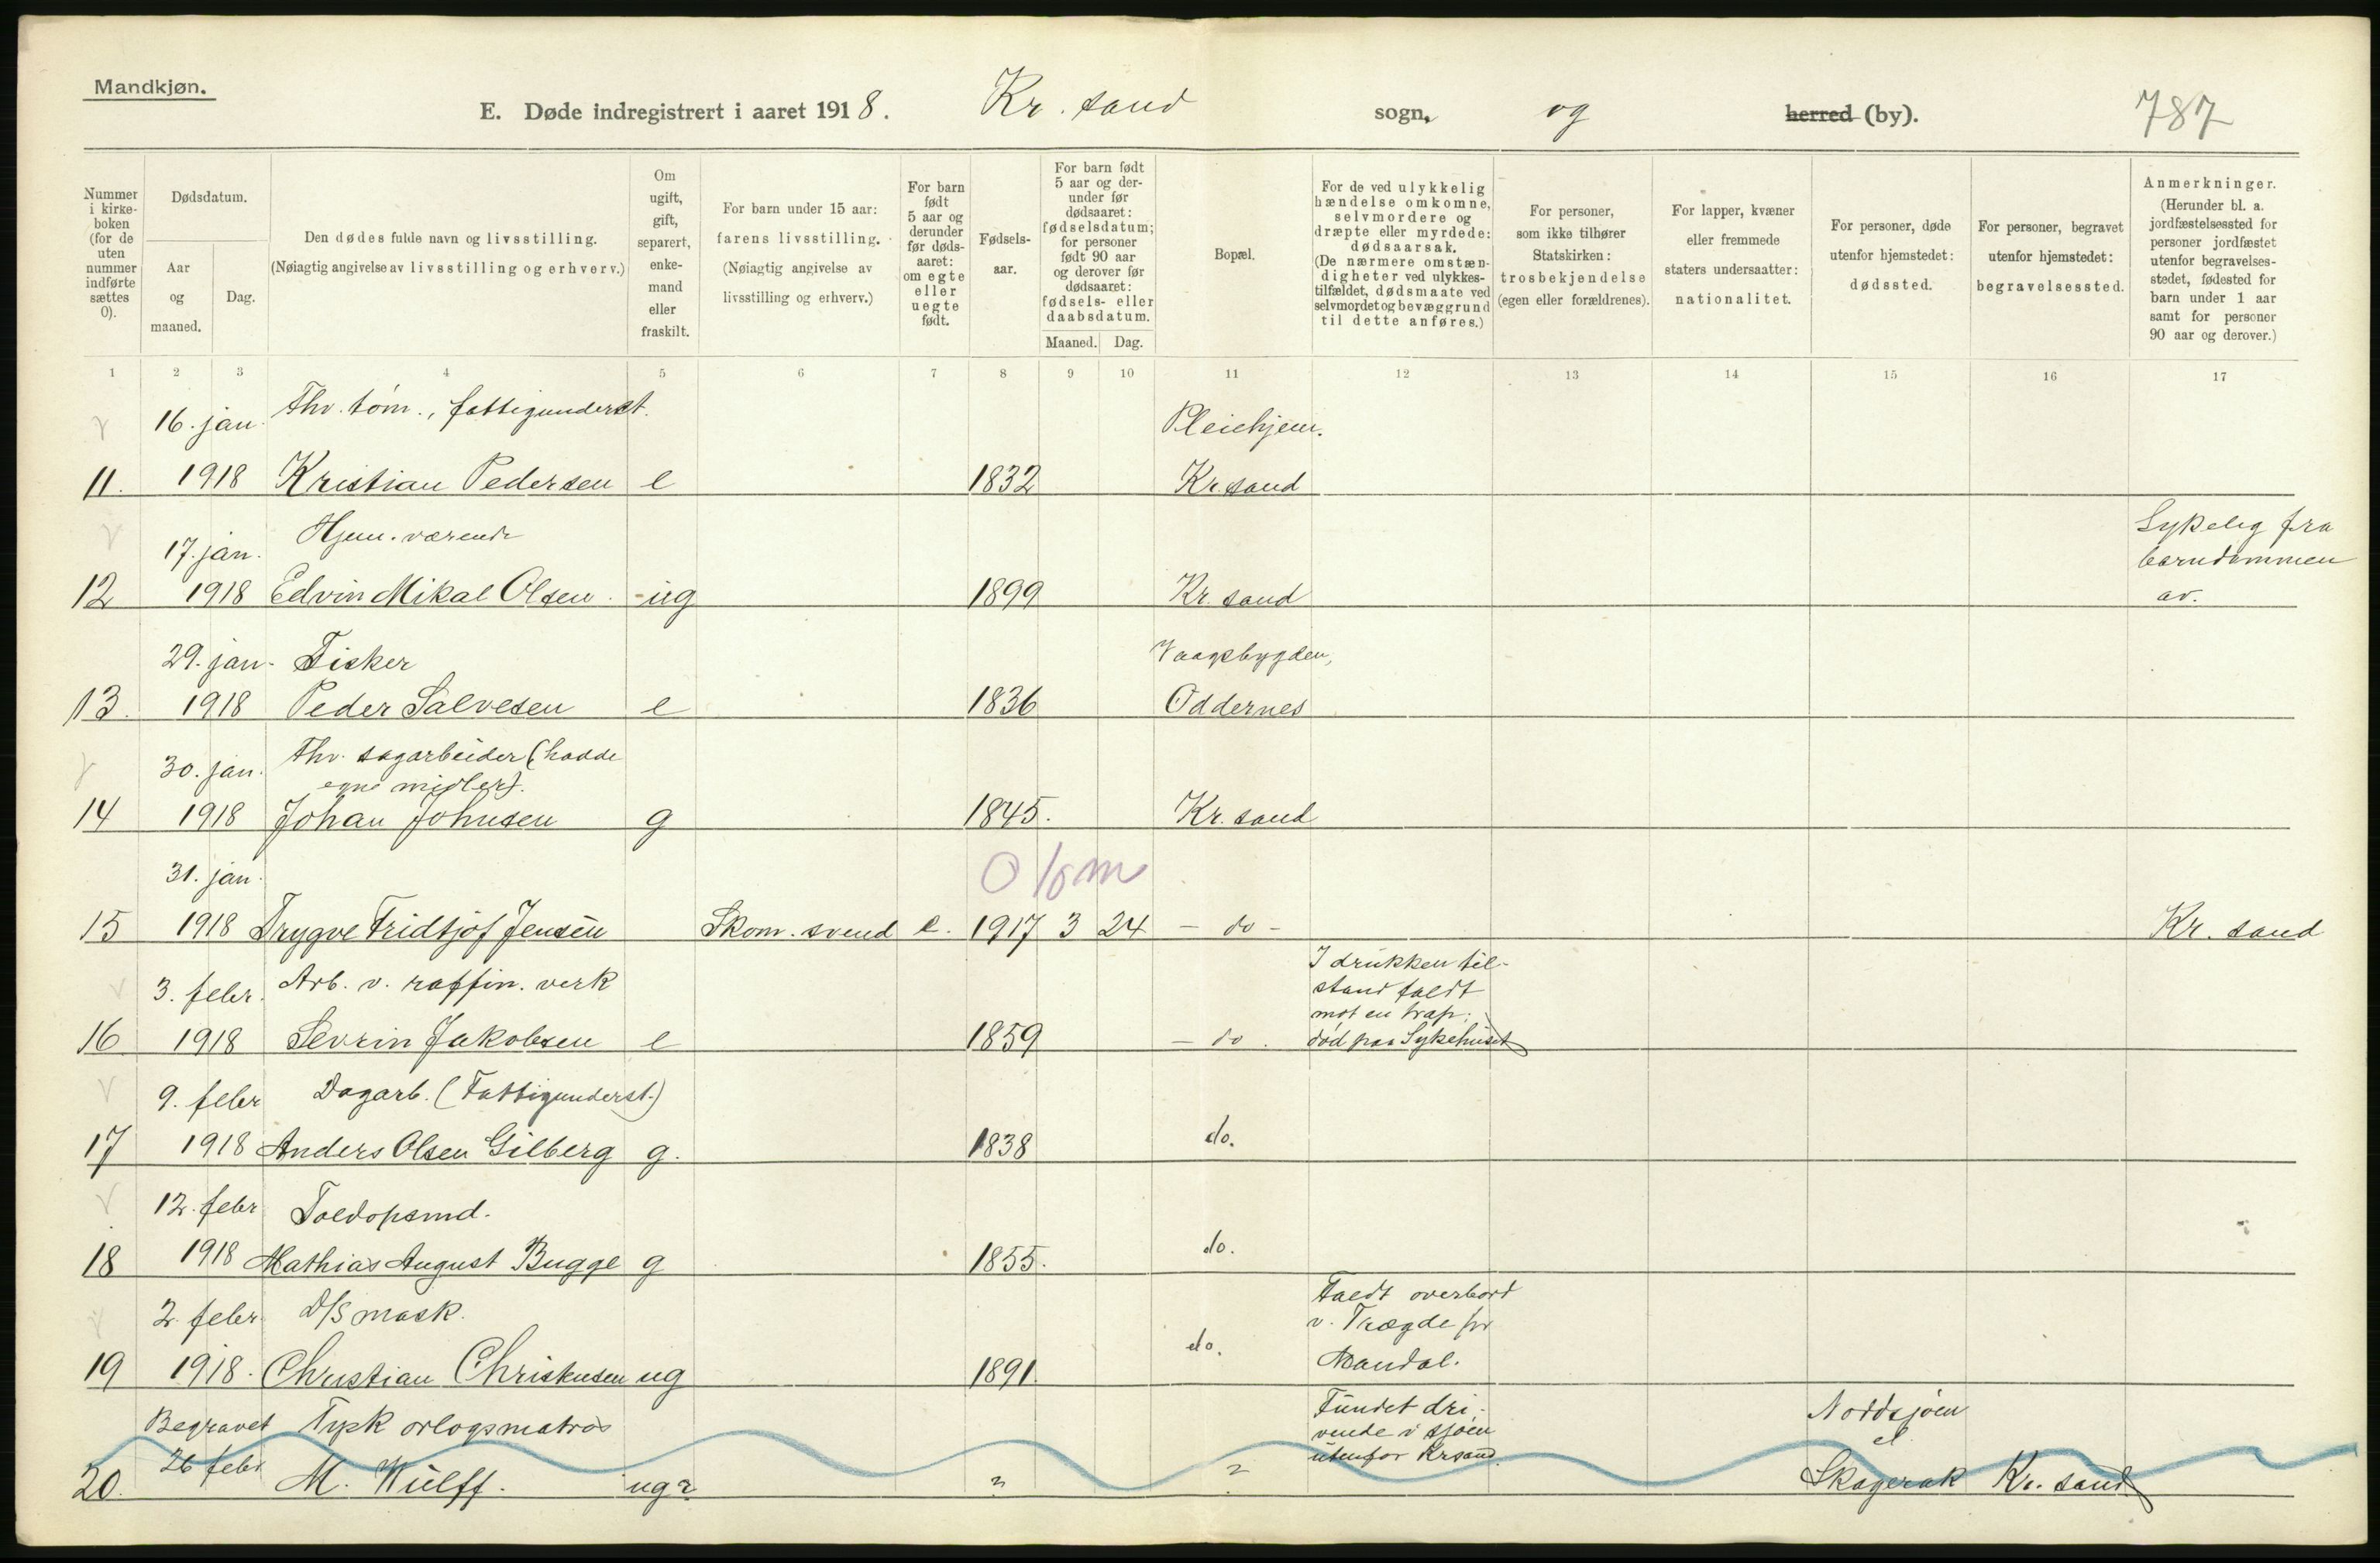 Mandkjøn.
E. Døde indregistrert i aaret 1918. Kr. sand sogn, og herred (by). 787
Nummer i kirkeboken (for de uten nummer indførte sættes 0).
Dødsdatum.
Aar og maaned.
Dag.
Den dødes fulde navn og livsstilling.
(Nøiagtig angivelse av livsstilling og erhverv.)
Om ugift, gift, separert, enkemand eller fraskilt.
For barn under 15 aar: farens livsstilling.
(Nøiagtig angivelse av livsstilling og erhverv.)
For barn født 5 aar og derunder før dødsaaret: om egte eller uegte født.
Fødselsaar.
For barn født 5 aar og derunder før dødsaaret: fødselsdatum; for personer født 90 aar og derover før dødsaaret: fødsels- eller daabsdatum.
Maaned. Dag.
Bopæl.
For de ved ulykkelig hændelse omkomne, selvmordere og dræpte eller myrdede: dødsaarsak.
(De nærmere omstændigheter ved ulykkestilfældet, dødsmaate ved selvmordet og bevæggrund til dette anføres.)
For personer, som ikke tilhører Statskirken: trosbekjendelse (egen eller forældrenes).
For lapper, kvæner eller fremmede staters undersaatter: nationalitet.
For personer, døde utenfor hjemstedet: dødssted.
For personer, begravet utenfor hjemstedet: begravelsessted.
Anmerkninger.
(Herunder bl. a. jordfæstelsessted for personer jordfæstet utenfor begravelsesstedet, fødested for barn under 1 aar samt for personer 90 aar og derover.)
1 2 3 4 5 6 7 8 9 10 11 12 13 14 15 16 17
16. jan. Fhv. tøm., fattigunderst. Pleiehjem.
11. 1918 Kristian Pedersen e 1832 Kr. sand
17. jan. Hjem. værende Sykelig fra
barndommen
12 1918 Edvin Mikal Olsen. ug 1899 Kr. sand av.
29. jan. Fisker Vaagsbygden,
13. 1918 Peder Salvesen e 1836 Oddernes
30. jan. Fhv. sagarbeider (hadde
egne midler).
14 1918 Johan Johnsen g 1845. Kr. sand
31. jan. 0 10m
15 1918 Trygve Fridtjof Jensen Skom. svend e. 1917 3 24 - do - Kr. sand
3. febr. Arb. v. raffin. verk I drukken til-
stand faldt
mot en trap;
16 1918 Sevrin Jakobsen e 1859 - do. død paa Sykehuset
9. febr Dagarb. (Fattigunderst.)
17 1918 Anders Olsen Gilberg g. 1838 do.
12. febr Toldopsmd.
18 1918 Mathias August Bugge g 1855. do.
2. febr. D/S mask. Faldt overbord
v. Trægde pr
19 1918. Christian Christensen ug 1891. do. Mandal.
Begravet Tysk orlogsmatros Fundet dri- Nordsjøen
vende i sjøen el
26 febr utenfor Krsand.
20. M. Wülff. ug? ? ? Skagerak Kr. sand